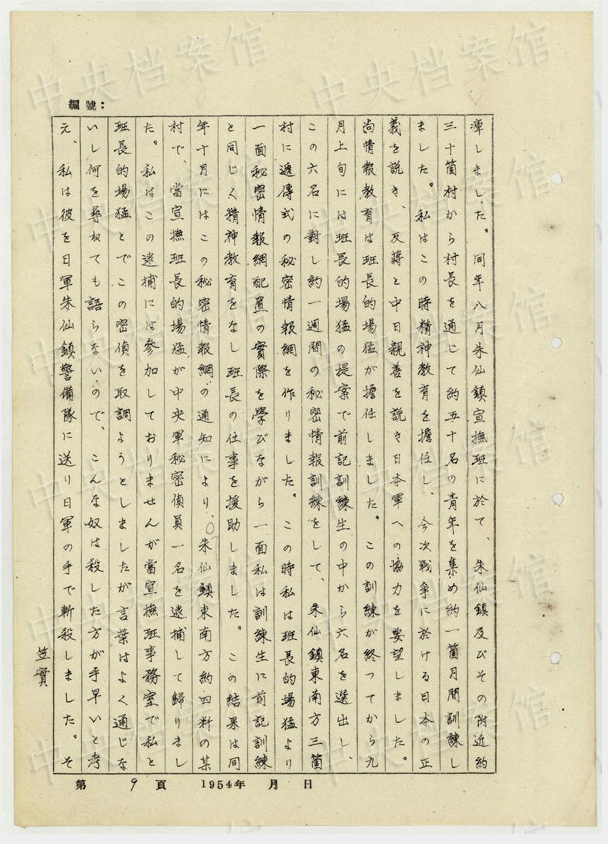 編號：
渾しました。同年八月朱仙鎮宣撫班に於て、朱仙鎮及びその附近約
三十箇村から村長を通じて約五十名の青年を集め約一箇月間訓練し
ました。私はこの時精神教育を擔任し、今次戰爭に於ける日本の正
義を説き、反蔣と中日親善を説き日本軍への協力を要望しました。
尚情報教育は班長的場猛が擔任しました。この訓練が終つてから九
月上旬には班長的場猛の提案で前記訓練生の中から六名を選出し、
この六名に對し約一週間の秘密情報訓練をして、朱仙鎮東南方三箇
村に逓傳式の秘密情報網を作りました。この時私は班長的場猛より
一面秘密情報網配置の實際を学びながら一面私は訓練生に前記訓練
と同じく精神教育をなし班長の仕事を援助しました。この結果は同
年十月にはこの秘密情報網の通知により、朱仙鎮東南方約四粁の某
村で、當宣撫班長的場猛が中央軍秘密偵員一名を逮捕して歸りまし
た。私はこの逮捕には参加しておりませんが當宣撫班事務室で私と
班長的場猛とでこの密偵を取調ようとしましたが言葉はよく通じな
いし何を尋ねても語らないので、こんな奴は殺した方が手早いと考
え、私は彼を日軍朱仙鎮警備隊に送り日軍の手で斬殺しました。そ
笠實
第 9 頁 1954年 月 日
中央档案馆